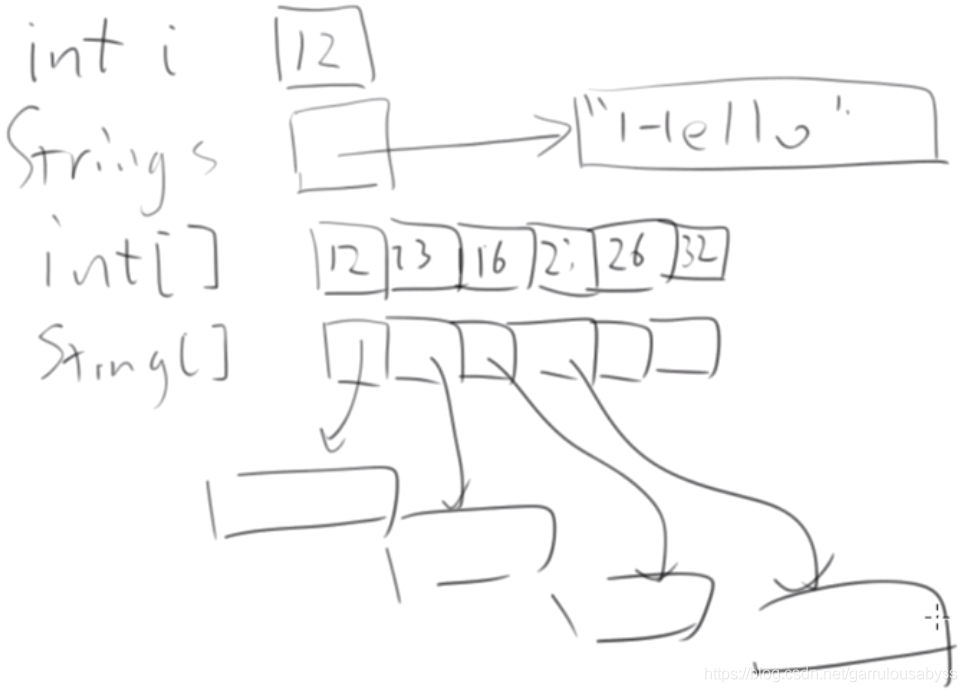 int i 12
String s "Hello"
int[] 12 23 16 26 32
String[]
https://blog.csdn.net/garrulousabyss